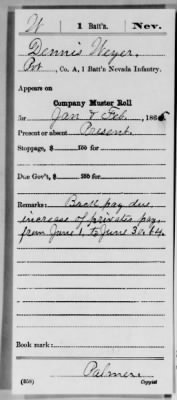 W 1 Batt'n. Nev.
Dennis Weyer,
Pvt, Co. A, 1 Batt'n Nevada Infantry.
Appears on
Company Muster Roll
for Jan & Feb, 1865
Present or absent Present.
Stoppage, $ 100 for
Due Gov't, $ 100 for
Remarks: Back pay due
increase of privates pay,
from June 1, to June 30, 64.
Book mark:
Palmer
(358) Copyist.